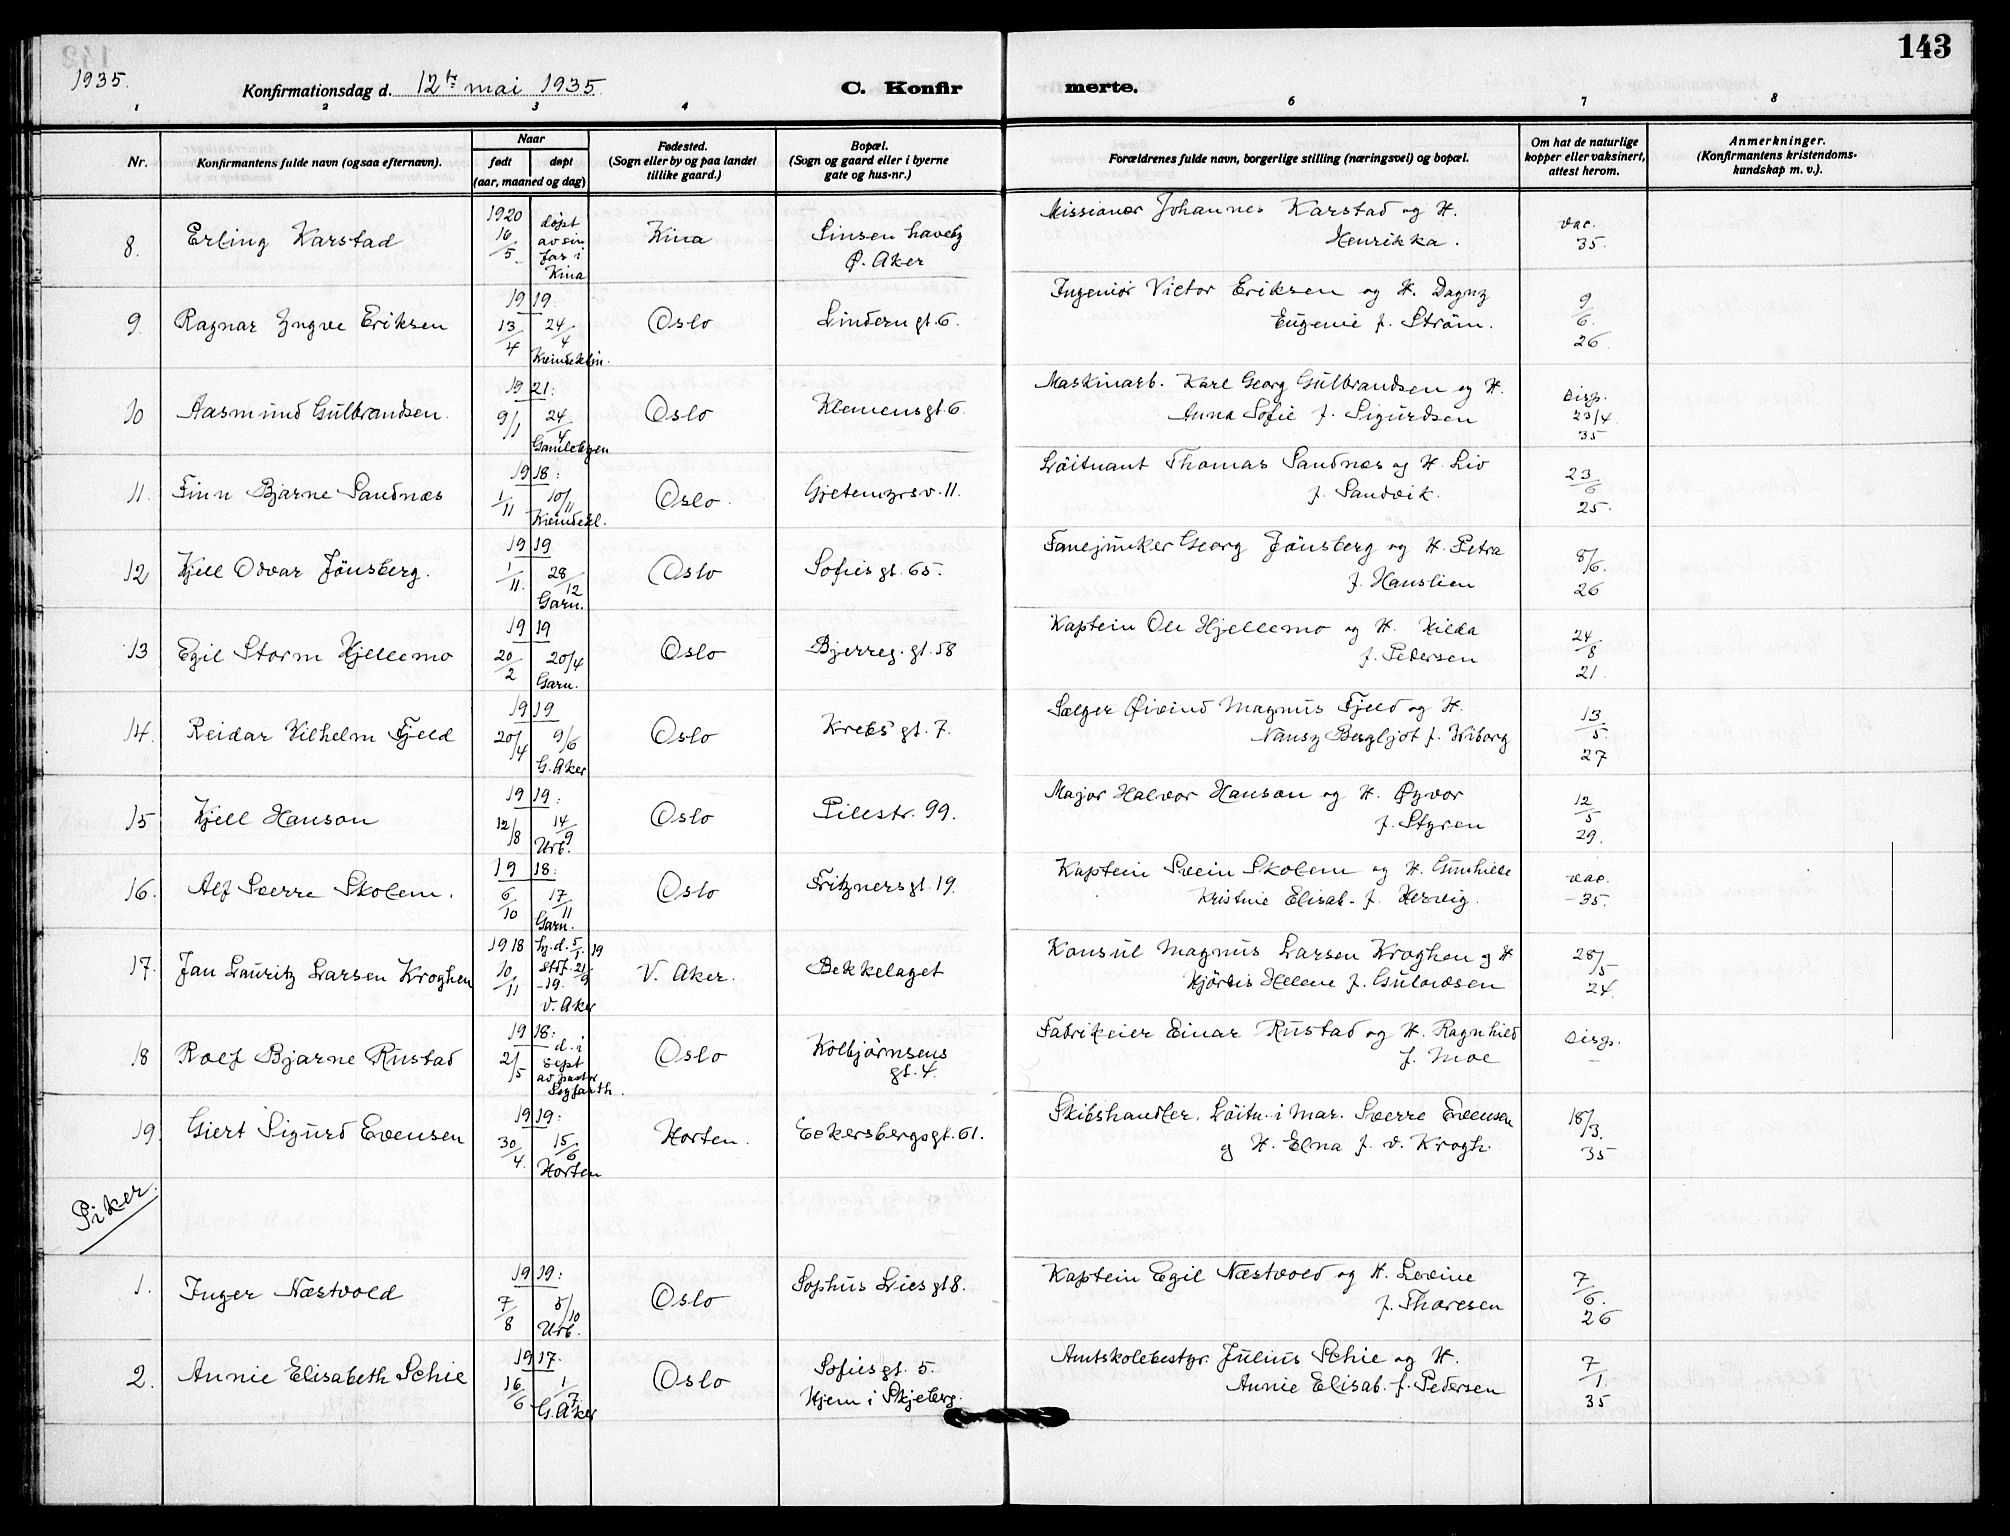 143
1935.
Konfirmationsdag d. 12te mai 1935.
C. Konfirmerte.
1 2 3 4 6 7 8
Nr.
Konfirmantens fulde navn (ogsaa efternavn).
Naar
født
døpt
(aar, maaned og dag)
Fødested.
(Sogn eller by og paa landet
tillike gaard.)
Bopæl.
(Sogn og gaard eller i byerne
gate og hus-nr.)
Forældrenes fulde navn, borgerlige stilling (næringsvei) og bopæl.
Om hat de naturlige
kopper eller vaksinert,
attest herom.
Anmerkninger.
(Konfirmantens kristendoms-
kundskap m. v.).
8. Erling Karstad
1920
16/5
døpt
av sin
far i
Kina
Kina
Sinsen haveby
Ø. Aker
Missionær Johannes Karstad og H.
Henrikka.
vac.
35.
9. Ragnar Yngve Eriksen
1919.
13/4
24/4
Kvindeklin.
Oslo
Linderngt. 6.
Ingeniør Victor Eriksen og H. Dagny
Eugenie f. Strøm.
9/6.
26
10 Aasmund Gulbrandsen.
1921:
9/1
24/4
Gamlebyen
Oslo
Klemensgt. 6.
Maskinarb. Karl Georg Gulbrandsen og H.
Anna Sofie f. Sigurdsen
Disp.
23/4
35
11. Finn Bjarne Sandnæs
1918:
1/11
10/11
Kvindekl.
Oslo.
Gjetemyrsv. 11.
Løitnant Thomas Sandnæs og H. Liv
f. Sandvik.
23/6
25.
12 Kjell Odvar Jønsberg.
1919
1/11.
28/12
Garn.
Oslo
Sofiesgt. 65.
Fanejunker Georg Jønsberg og H. Petra
f. Hanslien
8/6.
26
13 Egil Storm Hjellemo
1919
20/2
20/4
Garn.
Oslo
Bjerreg. gt. 58
Kaptein Ole Hjellemo og H. Hilda
f. Pedersen
24/8
21
14. Reidar Vilhelm Fjeld
1919
20/4
9/6
G. Aker
Oslo
Krebs' gt. 7.
Sælger Øivind Magnus Fjeld og H.
Nansy Bergljot f. Wiborg
13/5
27
15 Kjell Hanson
1919:
12/8
14/9
Urb.
Oslo
Pilestr. 99.
Major Halvor Hanson og H. Øyvor
f. Styren
12/5
29.
16. Alf Sverre Skolem.
1918:
6/10
17/11
Garn.
Oslo
Fritznersgt. 19.
Kaptein Svein Skolem og H. Gunhilde
Kristine Elisab. f. Hervig.
vac.
-35.
17. Jan Lauritz Larsen Kroghen
1918
10/11
hj.d. 5/1 19
stf. 21/9
-19.
V. Aker
V. Aker.
Bekkelaget
Konsul Magnus Larsen Kroghen og H
Hjørdis Helene f. Gulowsen
28/5
24.
18 Rolf Bjarne Rustad
1918:
2/5
d. i
Sept
av pastor
Oslo
Kolbjørnsens
gt. 4.
Fabrikeier Einar Rustad og H. Ragnhild
f. Moe
Disp.
19. Giert Sigurd Evensen
1919:
30/4.
15/6
Horten
Horten.
Eckersbergsgt. 61.
Skibshandler, Løitn. i Mar. Sverre Evensen
og H. Elna f. v. Krogh.
18/3.
35
Piker.
1. Inger Næstvold
1919:
7/8
5/10
Urb.
Oslo
Sophus Lies gt 8.
Kaptein Egil Næstvold og H. Lovine
f. Thoresen
7/6.
26
2. Annie Elisabeth Schie
1917.
16/6
1/7
G. Aker
Oslo
Sofiesgt. 5.
Hjem i Skjeberg.
Amtskolebestyr. Julius Schie og H.
Annie Elisab. f. Pedersen
7/1.
35